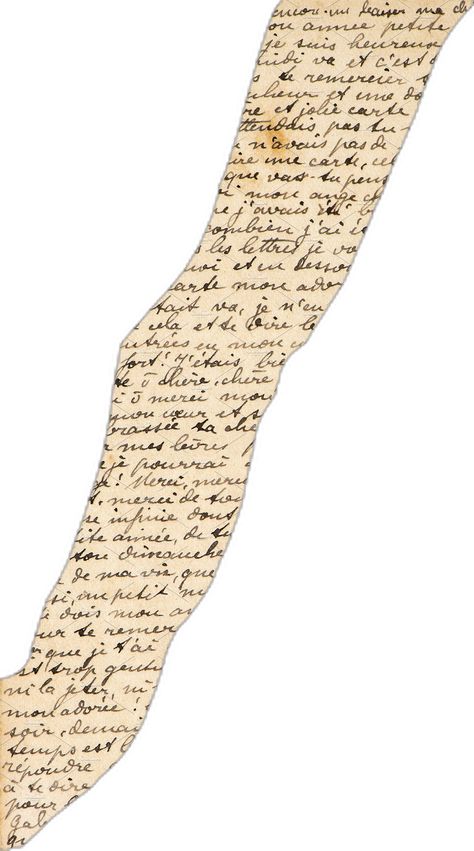 encore un baiser ma ch
on année petite
je suis heureux
undi va et c'est
s te remercier
nheur et une do
re et jolie carte
ttendais pas tu
n'avais pas de
ire une carte, ce
que vas-tu pens
i mon ange c
e j'avais été b
combien j'ai é
s les lettres je vo
uoi et en desso
carte mon ado
tait va, je n'en
cela et te dire le
ntrées en mon
fort! J'étais bie
te ō chère, chère
i ō merci mon
mon cœur et s
brassée ta che
r mes lèvres p
e je pourrai
! Merci, merci
t, merci de ton
se infinie dont
ite année, de t
ton dimanche
de ma vie, que
si, un petit m
dois mon a
ur te remer
que je t'ai
st trop genti
ni la jeter, ni
mon adorée!
soir, demai
temps est l
répondre
à te dire
pour
Gab